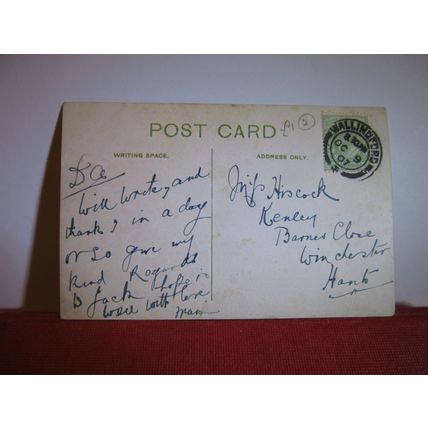 POST CARD £1 2
WRITING SPACE.
ADDRESS ONLY.
WALLINGFORD
OC 9
07
Will Write, and
thank ? in a day
or so give my
Kind Regards
to Jack I hope is
well with love
Miss Hiscock
Kenley
Barnes Close
Winchester
Hants